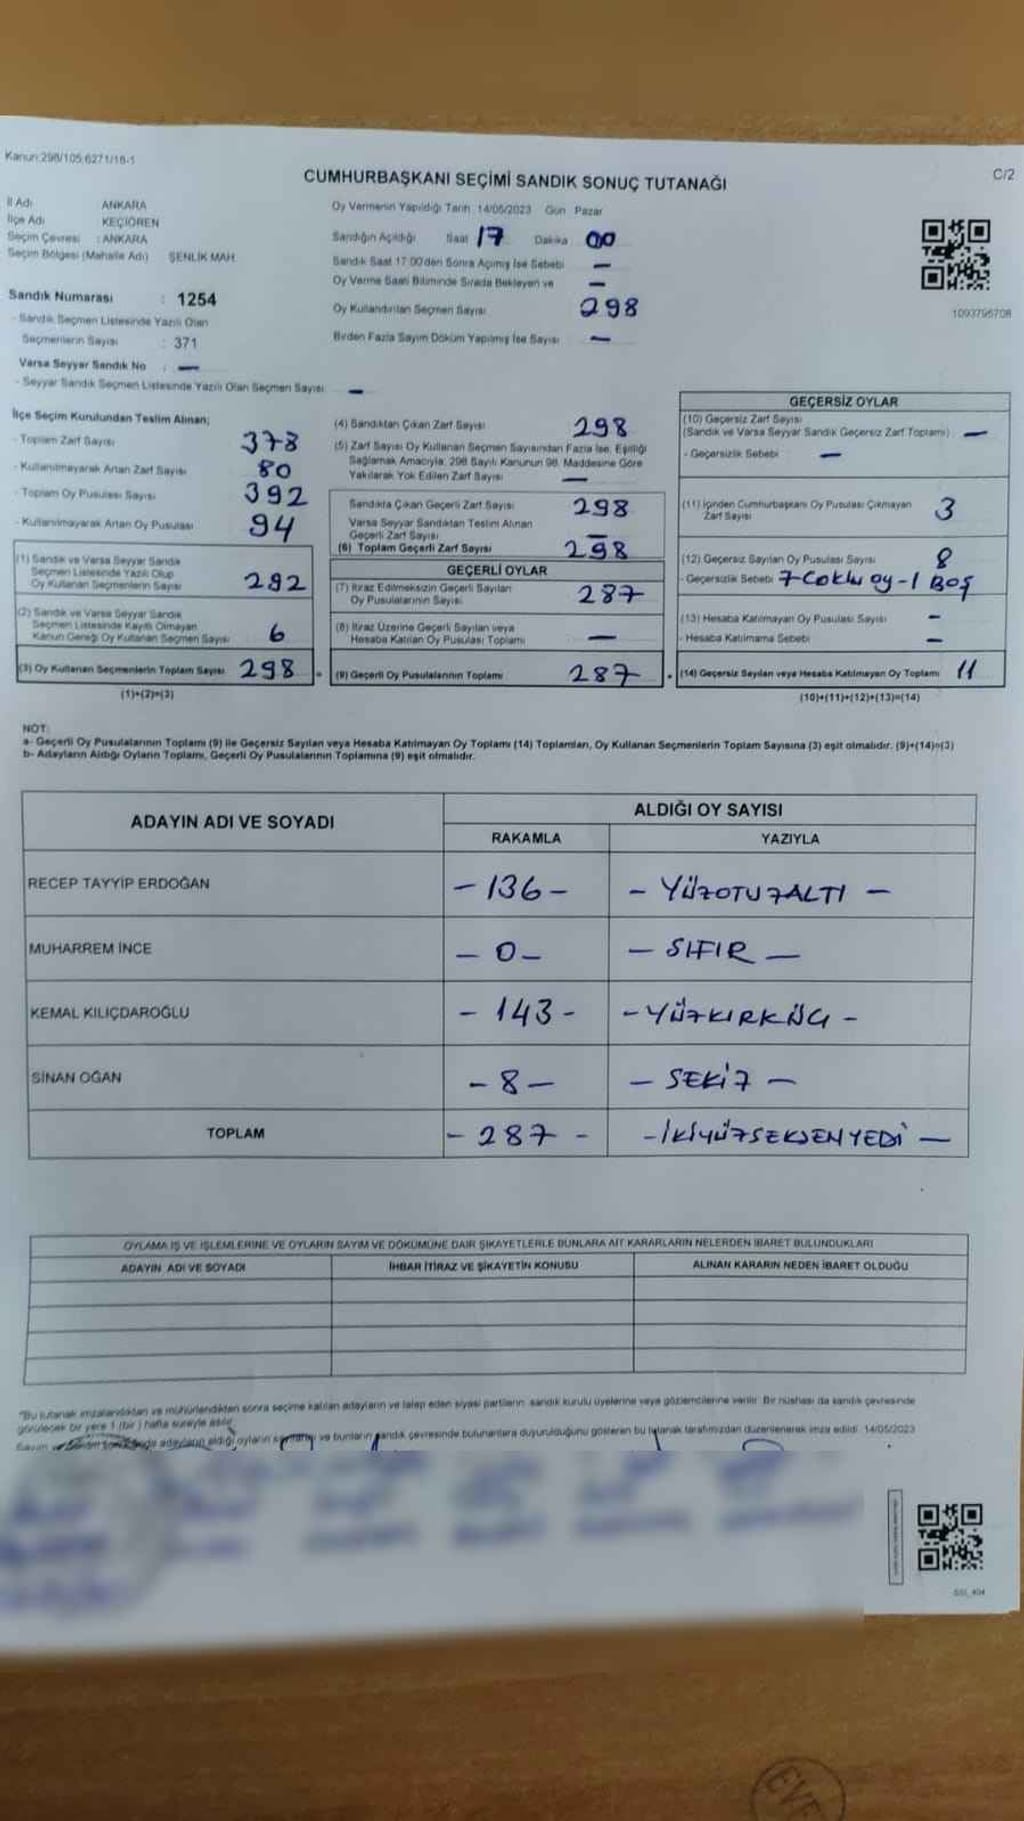 Kanun:298/105,6271/16-1
C/2
CUMHURBAŞKANI SEÇİMİ SANDIK SONUÇ TUTANAĞI
İl Adı ANKARA
İlçe Adı KEÇİÖREN
Seçim Çevresi : ANKARA
Seçim Bölgesi (Mahalle Adı) ŞENLİK MAH.
Sandık Numarası : 1254
- Sandık Seçmen Listesinde Yazılı Olan
Seçmenlerin Sayısı : 371
Varsa Seyyar Sandık No : —
- Seyyar Sandık Seçmen Listesinde Yazılı Olan Seçmen Sayısı —
Oy Vermenin Yapıldığı Tarih 14/05/2023 Gün Pazar
Sandığın Açıldığı Saat 17 Dakika 00
Sandık Saat 17:00'den Sonra Açılmış İse Sebebi —
Oy Verme Saati Bitiminde Sırada Bekleyen ve —
Oy Kullandırılan Seçmen Sayısı 298
Birden Fazla Sayım Döküm Yapılmış İse Sayısı —
1093795708
İlçe Seçim Kurulundan Teslim Alınan;
- Toplam Zarf Sayısı 378
- Kullanılmayarak Artan Zarf Sayısı 80
- Toplam Oy Pusulası Sayısı 392
- Kullanılmayarak Artan Oy Pusulası 94
(1) Sandık ve Varsa Seyyar Sandık
Seçmen Listesinde Yazılı Olup
Oy Kullanan Seçmenlerin Sayısı 292
(2) Sandık ve Varsa Seyyar Sandık
Seçmen Listesinde Kayıtlı Olmayan
Kanun Gereği Oy Kullanan Seçmen Sayısı 6
(3) Oy Kullanan Seçmenlerin Toplam Sayısı 298
(1)+(2)=(3)
(4) Sandıktan Çıkan Zarf Sayısı 298
(5) Zarf Sayısı Oy Kullanan Seçmen Sayısından Fazla İse, Eşitliği
Sağlamak Amacıyla, 298 Sayılı Kanunun 98. Maddesine Göre
Yakılarak Yok Edilen Zarf Sayısı —
Sandıkta Çıkan Geçerli Zarf Sayısı 298
Varsa Seyyar Sandıktan Teslim Alınan
Geçerli Zarf Sayısı —
(6) Toplam Geçerli Zarf Sayısı 298
GEÇERLİ OYLAR
(7) İtiraz Edilmeksizin Geçerli Sayılan
Oy Pusulalarının Sayısı 287
(8) İtiraz Üzerine Geçerli Sayılan veya
Hesaba Katılan Oy Pusulası Toplamı —
(9) Geçerli Oy Pusulalarının Toplamı 287
GEÇERSİZ OYLAR
(10) Geçersiz Zarf Sayısı
(Sandık ve Varsa Seyyar Sandık Geçersiz Zarf Toplamı) —
- Geçersizlik Sebebi —
(11) İçinden Cumhurbaşkanı Oy Pusulası Çıkmayan
Zarf Sayısı 3
(12) Geçersiz Sayılan Oy Pusulası Sayısı 8
- Geçersizlik Sebebi 7 Çoklu oy - 1 Boş
(13) Hesaba Katılmayan Oy Pusulası Sayısı —
- Hesaba Katılmama Sebebi —
(14) Geçersiz Sayılan veya Hesaba Katılmayan Oy Toplamı 11
(10)+(11)+(12)+(13)=(14)
NOT:
a- Geçerli Oy Pusulalarının Toplamı (9) ile Geçersiz Sayılan veya Hesaba Katılmayan Oy Toplamı (14) Toplamları, Oy Kullanan Seçmenlerin Toplam Sayısına (3) eşit olmalıdır. (9)+(14)=(3)
b- Adayların Aldığı Oyların Toplamı, Geçerli Oy Pusulalarının Toplamına (9) eşit olmalıdır.
ADAYIN ADI VE SOYADI
ALDIĞI OY SAYISI
RAKAMLA YAZIYLA
RECEP TAYYİP ERDOĞAN - 136 - - YÜZOTUZALTI -
MUHARREM İNCE - 0 - - SIFIR -
KEMAL KILIÇDAROĞLU - 143 - - YÜZKIRKÜÇ -
SİNAN OĞAN - 8 - - SEKİZ -
TOPLAM - 287 - - İKİYÜZSEKSENYEDİ -
OYLAMA İŞ VE İŞLEMLERİNE VE OYLARIN SAYIM VE DÖKÜMÜNE DAİR ŞİKAYETLERLE BUNLARA AİT KARARLARIN NELERDEN İBARET BULUNDUKLARI
ADAYIN ADI VE SOYADI İHBAR İTİRAZ VE ŞİKAYETİN KONUSU ALINAN KARARIN NEDEN İBARET OLDUĞU
"Bu tutanak imzalandıktan ve mühürlendikten sonra seçime katılan adayların ve talep eden siyasi partilerin sandık kurulu üyelerine veya gözlemcilerine verilir. Bir nüshası da sandık çevresinde
görülecek bir yere 1 (bir) hafta süreyle asılır."
adayların aldığı oyların ve bunların sandık çevresinde bulunanlara duyurulduğunu gösteren bu tutanak tarafımızdan düzenlenerek imza edildi. 14/05/2023
EVE